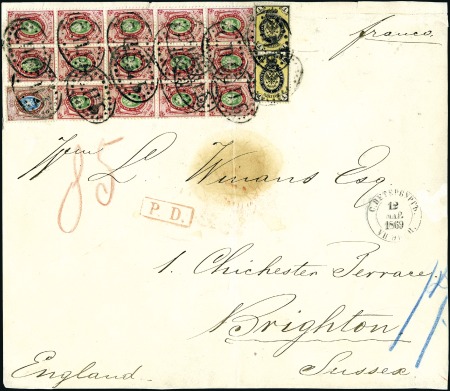 franco
Wm L. Winans Esq
85
P. D.
С. ПЕТЕРБУРГЪ
12
МАР.
1869
1. Chichester Terrace.
Brighton
Sussex
England